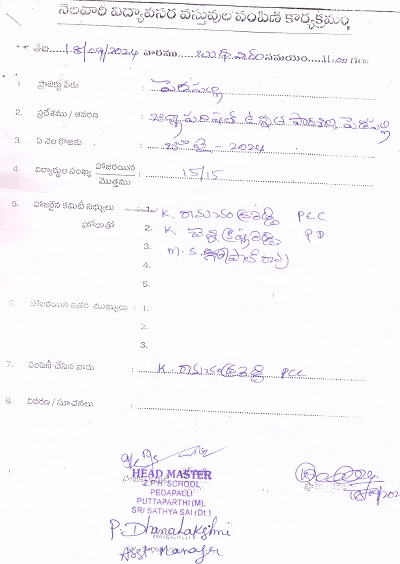 నెలవారీ విద్యావసర వస్తువుల పంపిణి కార్యక్రమం
తేది 18/09/2024 వారము బుధవారం సమయం 11.00 గం॥
1. ప్రాజెక్టు పేరు : పెదపల్లి
2. ప్రదేశము / ఆవరణ : జిల్లా పరిషత్ ఉన్నత పాఠశాల, పెదపల్లి
3. ఏ నెల కొఱకు : జులై - 2024
4. విద్యార్థుల సంఖ్య హాజరయిన / మొత్తము : 15/15
5. హాజరైన కమిటీ సభ్యులు : 1. K. రామచంద్రారెడ్డి PCC
హోదాతో 2. K PD
3. M. S.
4.
5.
6. హాజరయిన ఇతర ముఖ్యులు : 1.
2.
3.
7. పంపిణీ చేసిన వారు : K. రామచంద్రారెడ్డి PCC
8. వివరణ / సూచనలు :
HEAD MASTER
Z.P.H. SCHOOL
PEDAPALLI
PUTTAPARTHI (M),
SRI SATHYA SAI (Dt.)
P. Dhanalakshmi
Asst manager